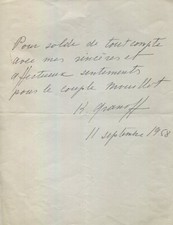 Pour solde de tout compte
avec mes sincères et
affectueux sentiments
pour le couple Mouillot
K. Granoff
11 septembre 1958